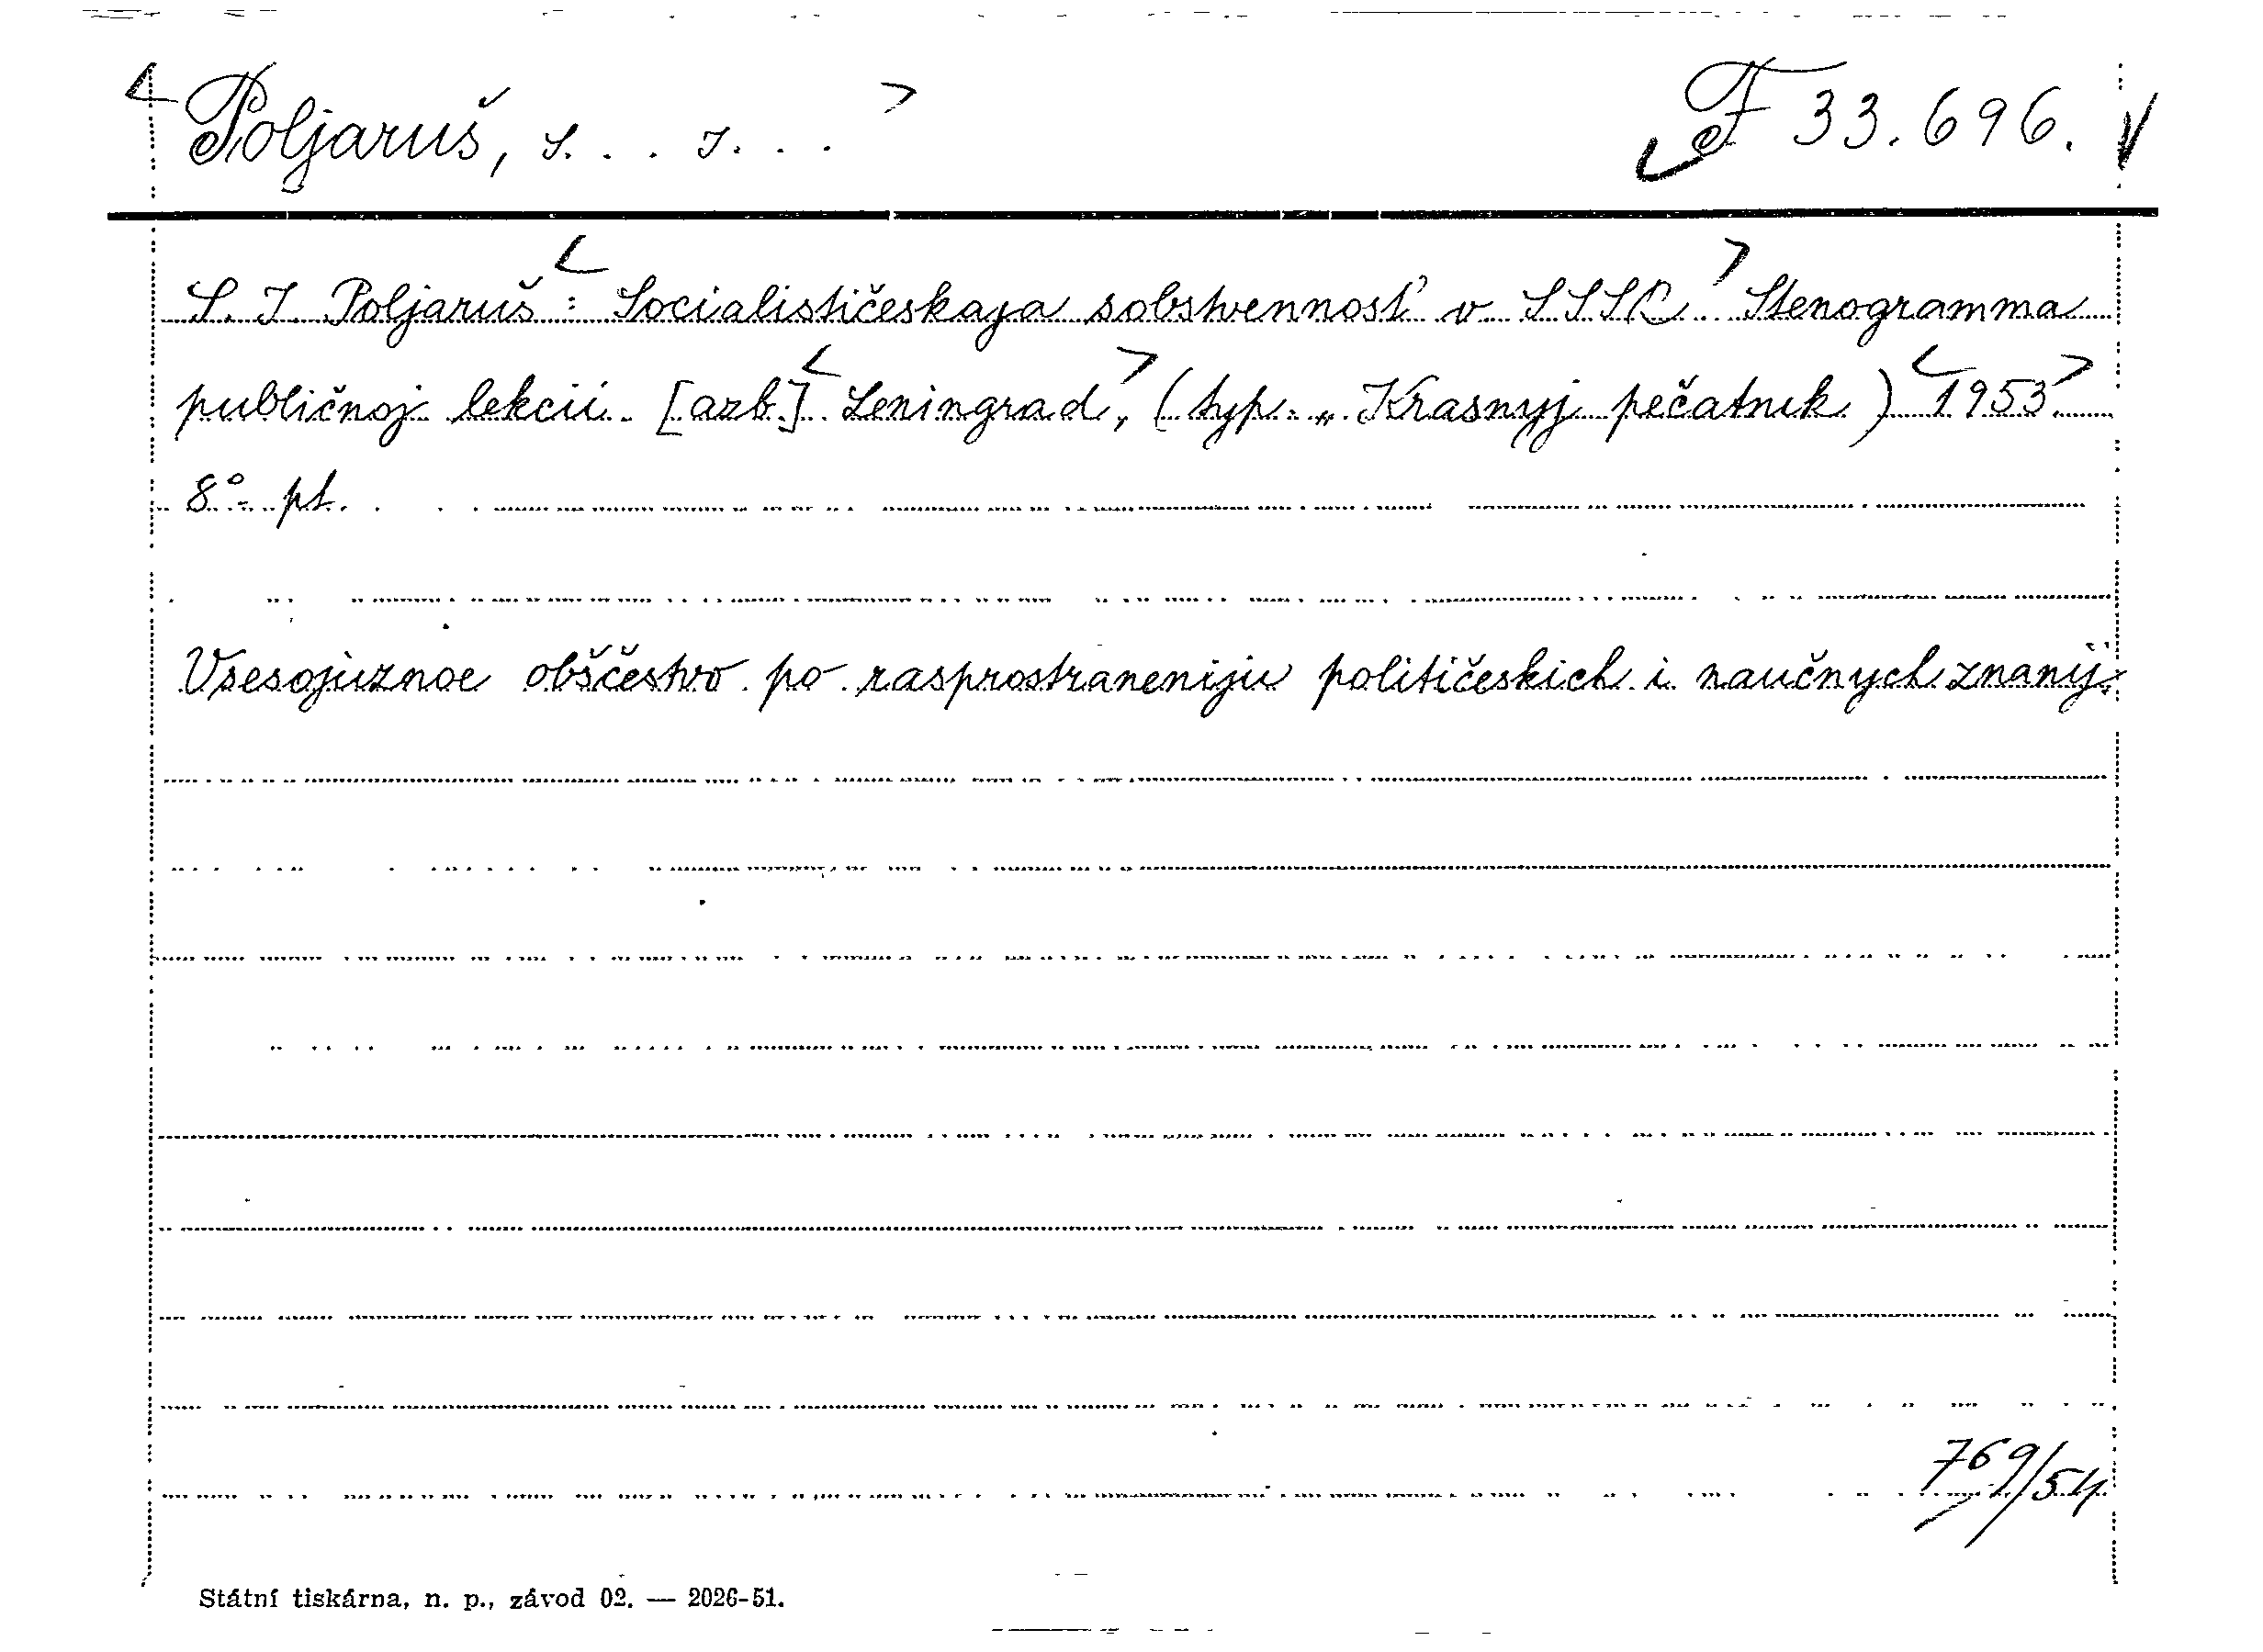 Poljaruš, S. . . I. . .
F 33.696.
S. I. Poljaruš : Socialističeskaja sobstvennosť v SSSR Stenogramma
publičnoj lekcii. [azb.] Leningrad, (typ. „Krasnyj pečatnik) 1953.
8° pt.
Vsesojuznoe obščestvo po rasprostraneniju političeskich i naučnych znanij.
769/54
Státní tiskárna, n. p., závod 02. — 2026-51.